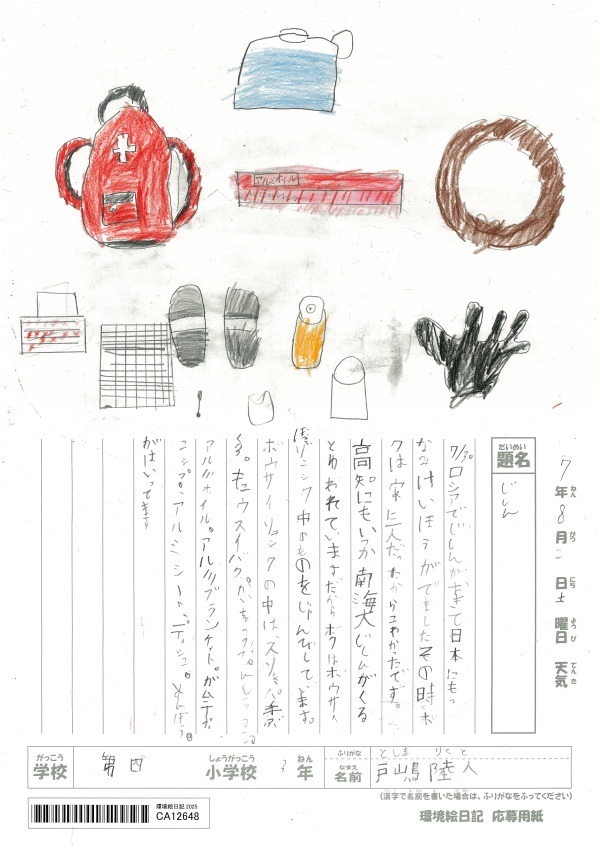 アルミホイル
7年8月二日土曜日 天気
ねん がつ にち ようび てんき
だいめい
題名
じしん
7/30 ロシアでじしんがおきて日本にもつ
なみけいほうがでましたその時ボ
クは家に一人だったからこわかったです。
高知にもいつか南海大じしんがくる
といわれていますだからボクはボウサイ
リュック中のものをじゅんびしています。
ボウサイリュックの中は、スリッパ、手ぶ
くろ。キュウスイバック。
アルミホイル。アルミブランケット。ガムテープ。
コップ。アルミシート、ティシュ。めんぼう。
がはいってます
がっこう
学校
第四
しょうがっこう
小学校
3年
ねん
ふりがな
としま りくと
なまえ
名前
戸嶋 陸人
(漢字で名前を書いた場合は、ふりがなをふってください)
環境絵日記 2025
CA12648
環境絵日記 応募用紙